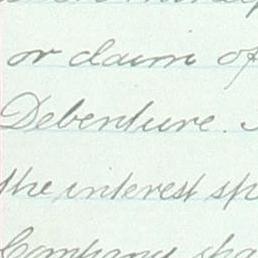 or claim of
Debenture.
the interest sp
Company sha